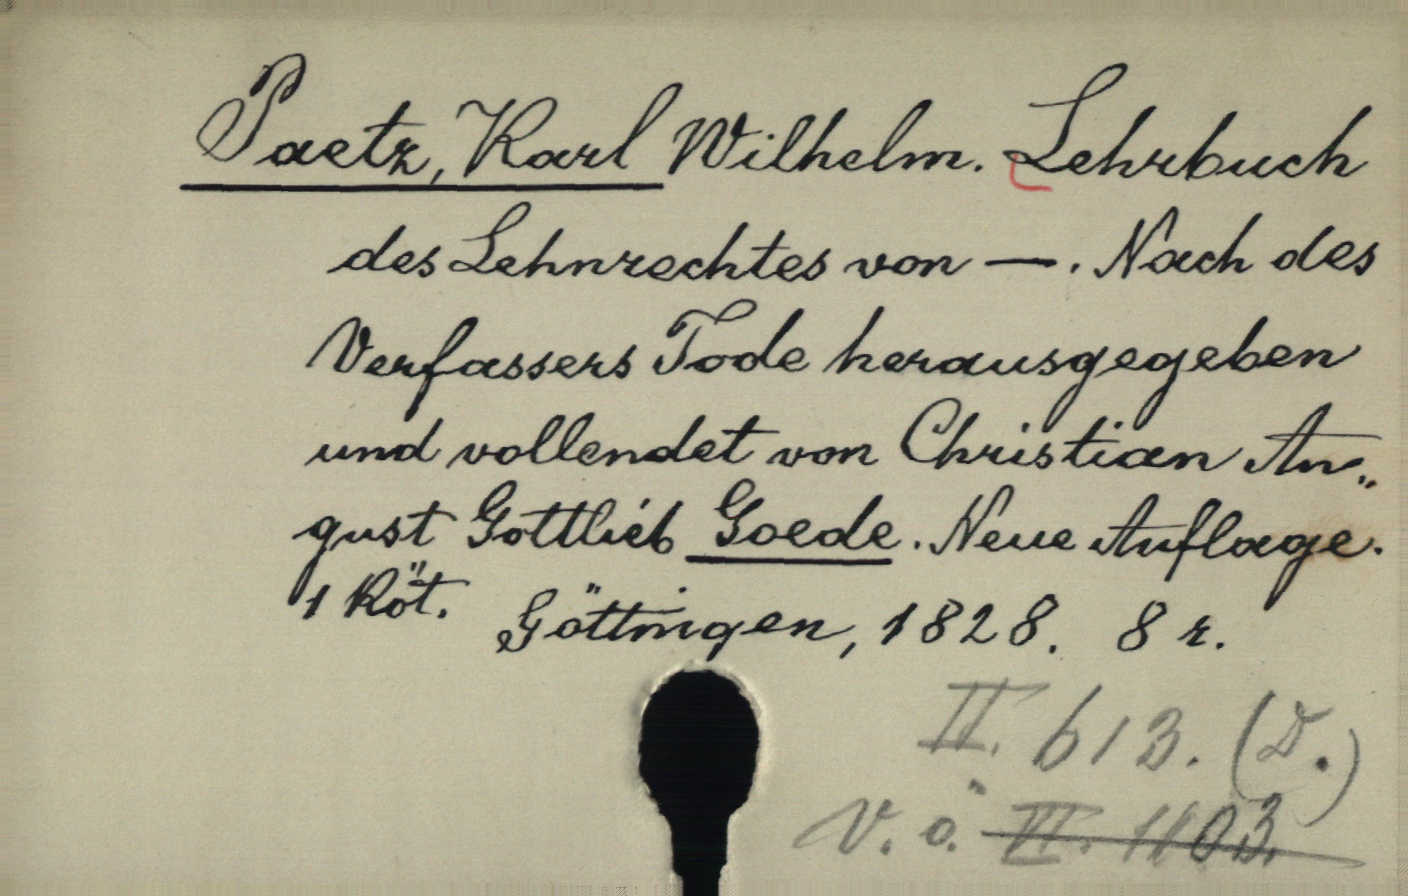 Paetz, Karl Wilhelm. Lehrbuch
des Lehnrechtes von —. Nach des
Verfassers Tode herausgegeben
und vollendet von Christian Au„
gust Gottlieb Goede. Neue Auflage.
1 Köt. Göttingen, 1828. 8 r.
II. 613. (D.)
V. ö. II. 1103.